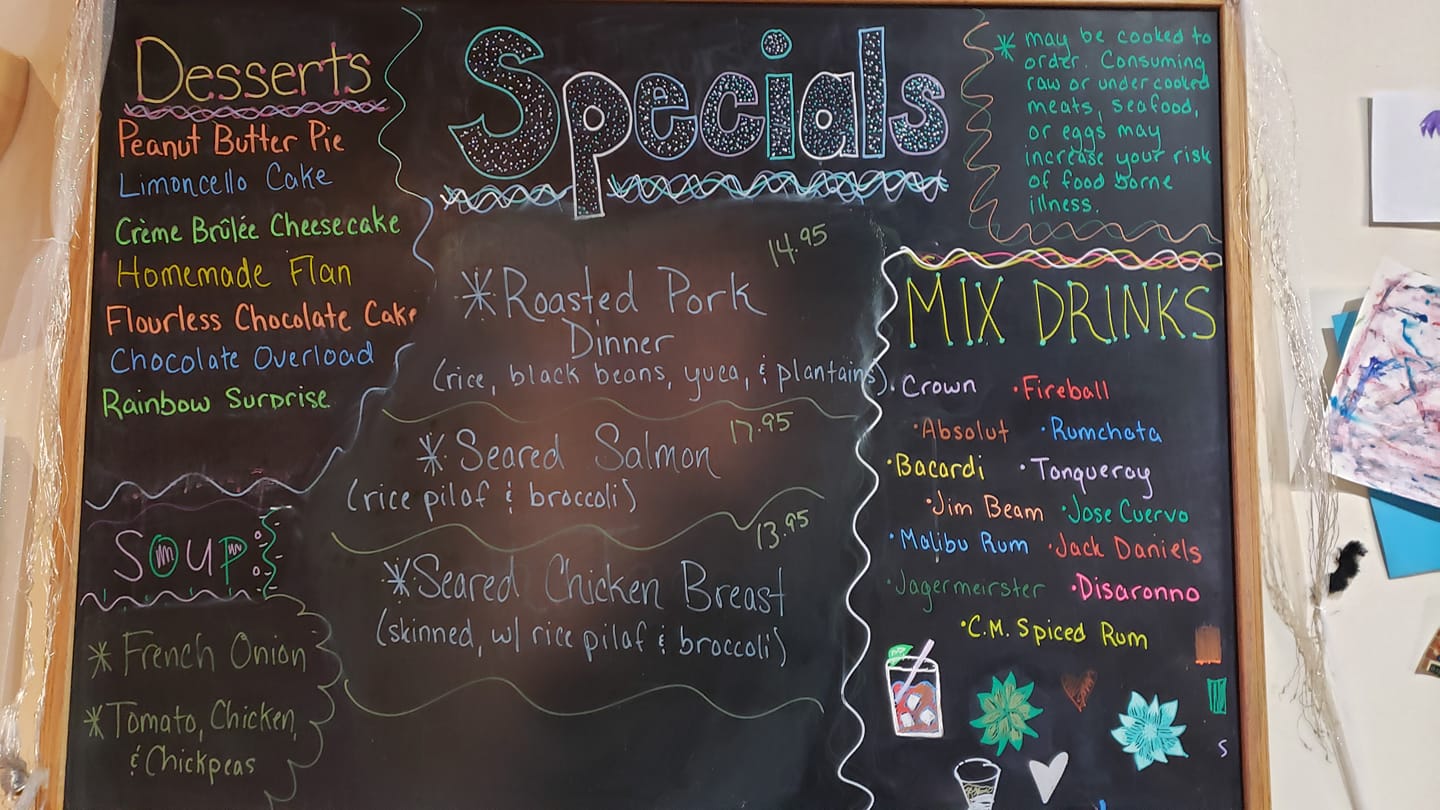 Desserts
Peanut Butter Pie
Limoncello Cake
Crème Brûlée Cheesecake
Homemade Flan
Flourless Chocolate Cake
Chocolate Overload
Rainbow Surprise
SOUP
* French Onion
* Tomato, Chicken,
& Chickpeas
Specials
14.95
* Roasted Pork
Dinner
(rice, black beans, yuca, & plantains)
17.95
* Seared Salmon
(rice pilaf & broccoli)
13.95
* Seared Chicken Breast
(skinned, w/ rice pilaf & broccoli)
* may be cooked to
order. Consuming
raw or undercooked
meats, seafood,
or eggs may
increase your risk
of food borne
illness.
MIX DRINKS
• Crown • Fireball
• Absolut • Rumchata
• Bacardi • Tanqueray
• Jim Beam • Jose Cuervo
• Malibu Rum • Jack Daniels
• Jagermeirster • Disaronno
• C.M. Spiced Rum